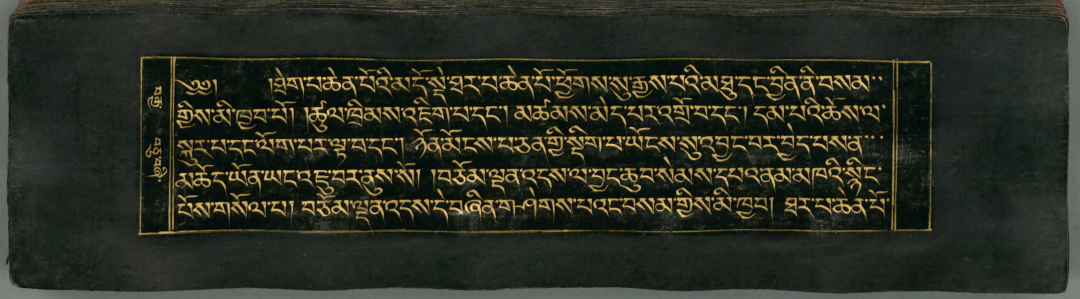 ༄༅། །ཐེག་པ་ཆེན་པོའི་མདོ་སྡེ་ཐར་པ་ཆེན་པོ་ཕྱོགས་སུ་རྒྱས་པའི་མཐུ་དང་བྱིན་ནི་བསམ་
གྱིས་མི་ཁྱབ་པོ། །ཚུལ་ཁྲིམས་འཇིག་པ་དང་། མཚམས་མེད་པར་འགྲོ་བ་དང་། དམ་པའི་ཆོས་ལ་
སྐུར་པ་དང་ལོག་པར་ལྟ་བ་དང་། ཉོན་མོངས་པ་ཅན་གྱི་སྡིག་པ་ཡོངས་སུ་འབྱང་བར་བྱེད་པས་ན་
མཆོད་ཡོན་ཡང་འཇུ་བར་ནུས་སོ། །བཅོམ་ལྡན་འདས་ལ་བྱང་ཆུབ་སེམས་དཔའ་ནམ་མཁའི་སྙིང་
པོས་གསོལ་པ། བཅོམ་ལྡན་འདས་དེ་བཞིན་གཤེགས་པའང་བསམ་གྱིས་མི་ཁྱབ། ཐར་པ་ཆེན་པོ་